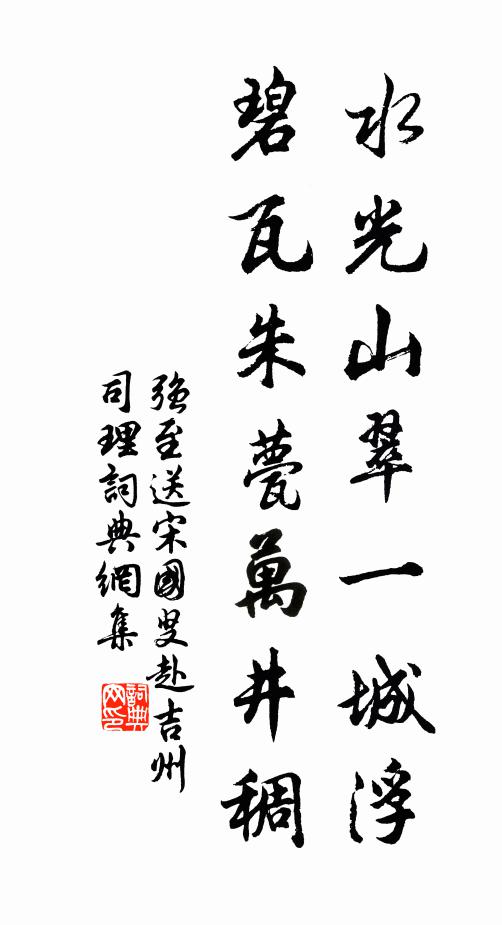 水光山翠一城浮
碧瓦朱甍萬井稠
強至送宋國叟赴吉州
司理詞典網集
詞典
网印